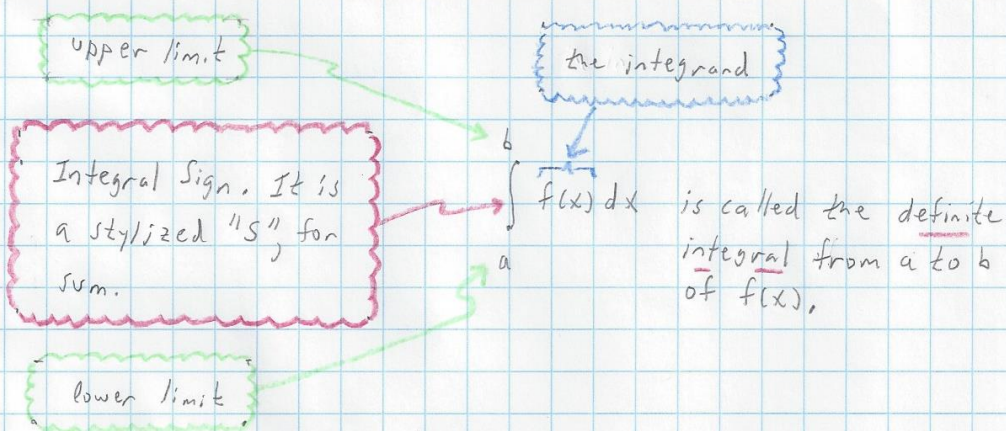 upper limit
the integrand
Integral Sign. It is
a stylized "S", for
sum.
b
∫ f(x) dx
a
is called the definite
integral from a to b
of f(x).
lower limit